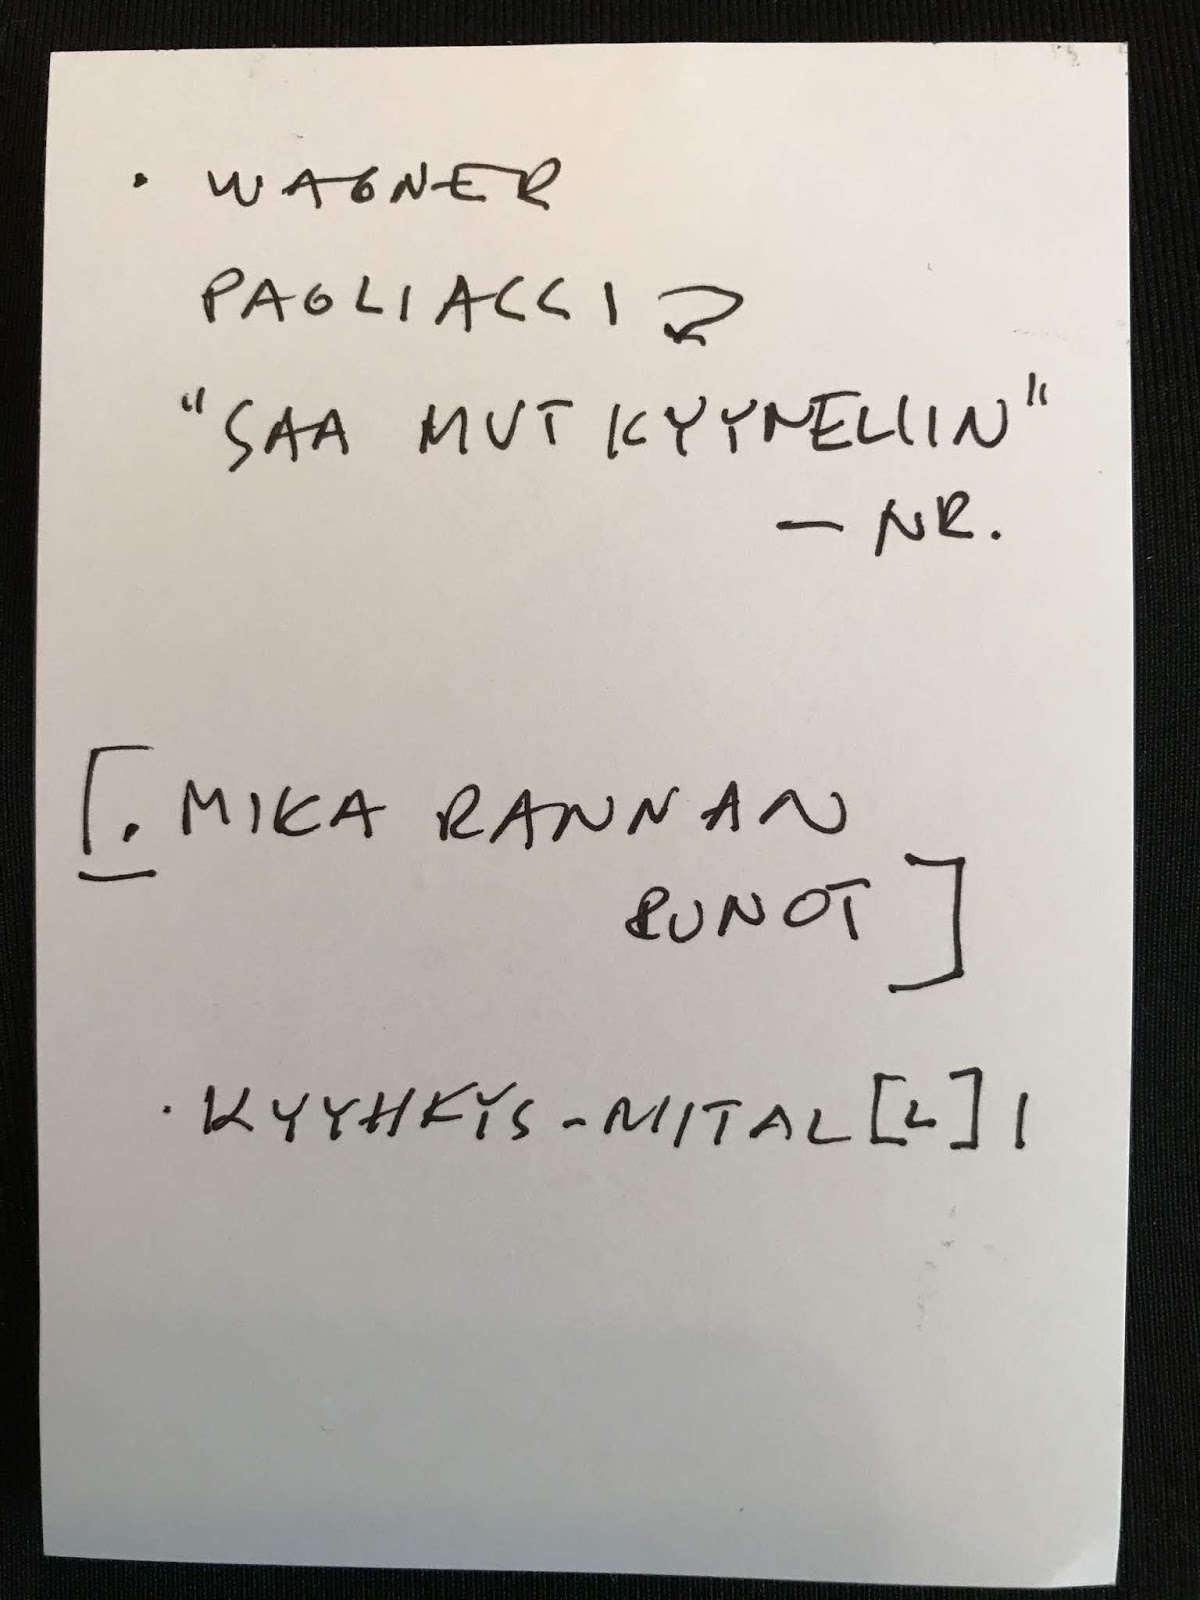 • WAGNER
PAGLIACCI ⤶
"SAA MUT KYYNELIIN"
— NR.
[• MIKA RANNAN
RUNOT]
• KYYHKYS-MITAL[L]I